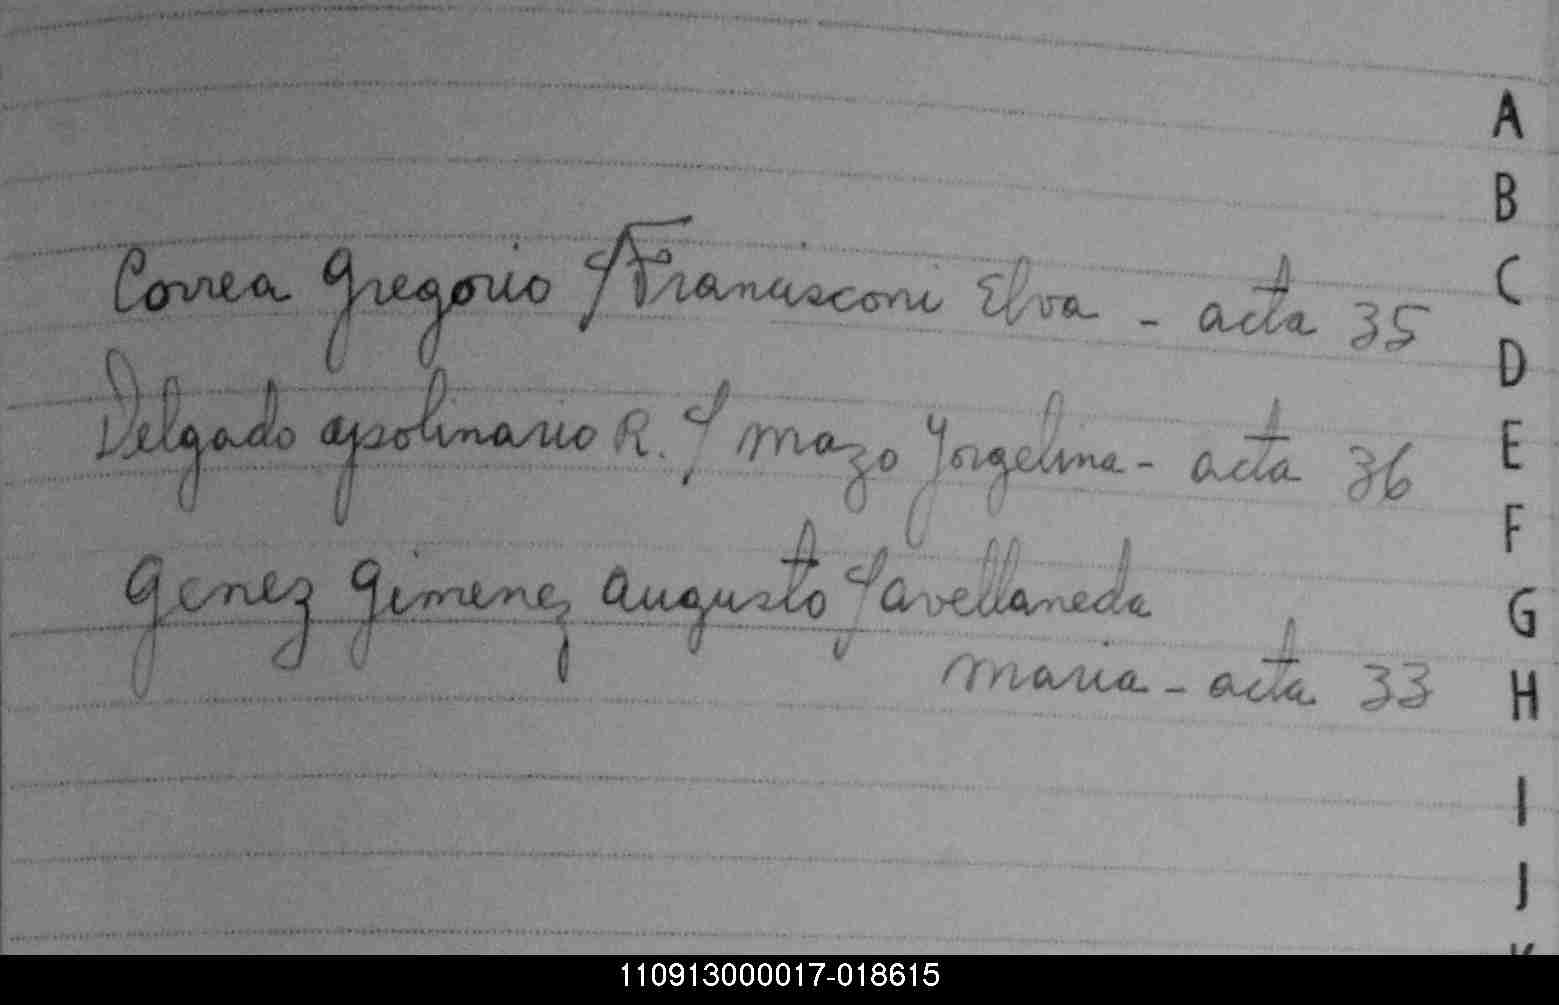 A
B
Correa Gregorio c/ Francisconi Elva - acta 35
C
D
Delgado Apolinario R. c/ Mazo Yorgelina - acta 36
E
F
Genez Gimenez Augusto c/ Avellaneda
G
Maria - acta 33
H
I
J
K
110913000017-018615